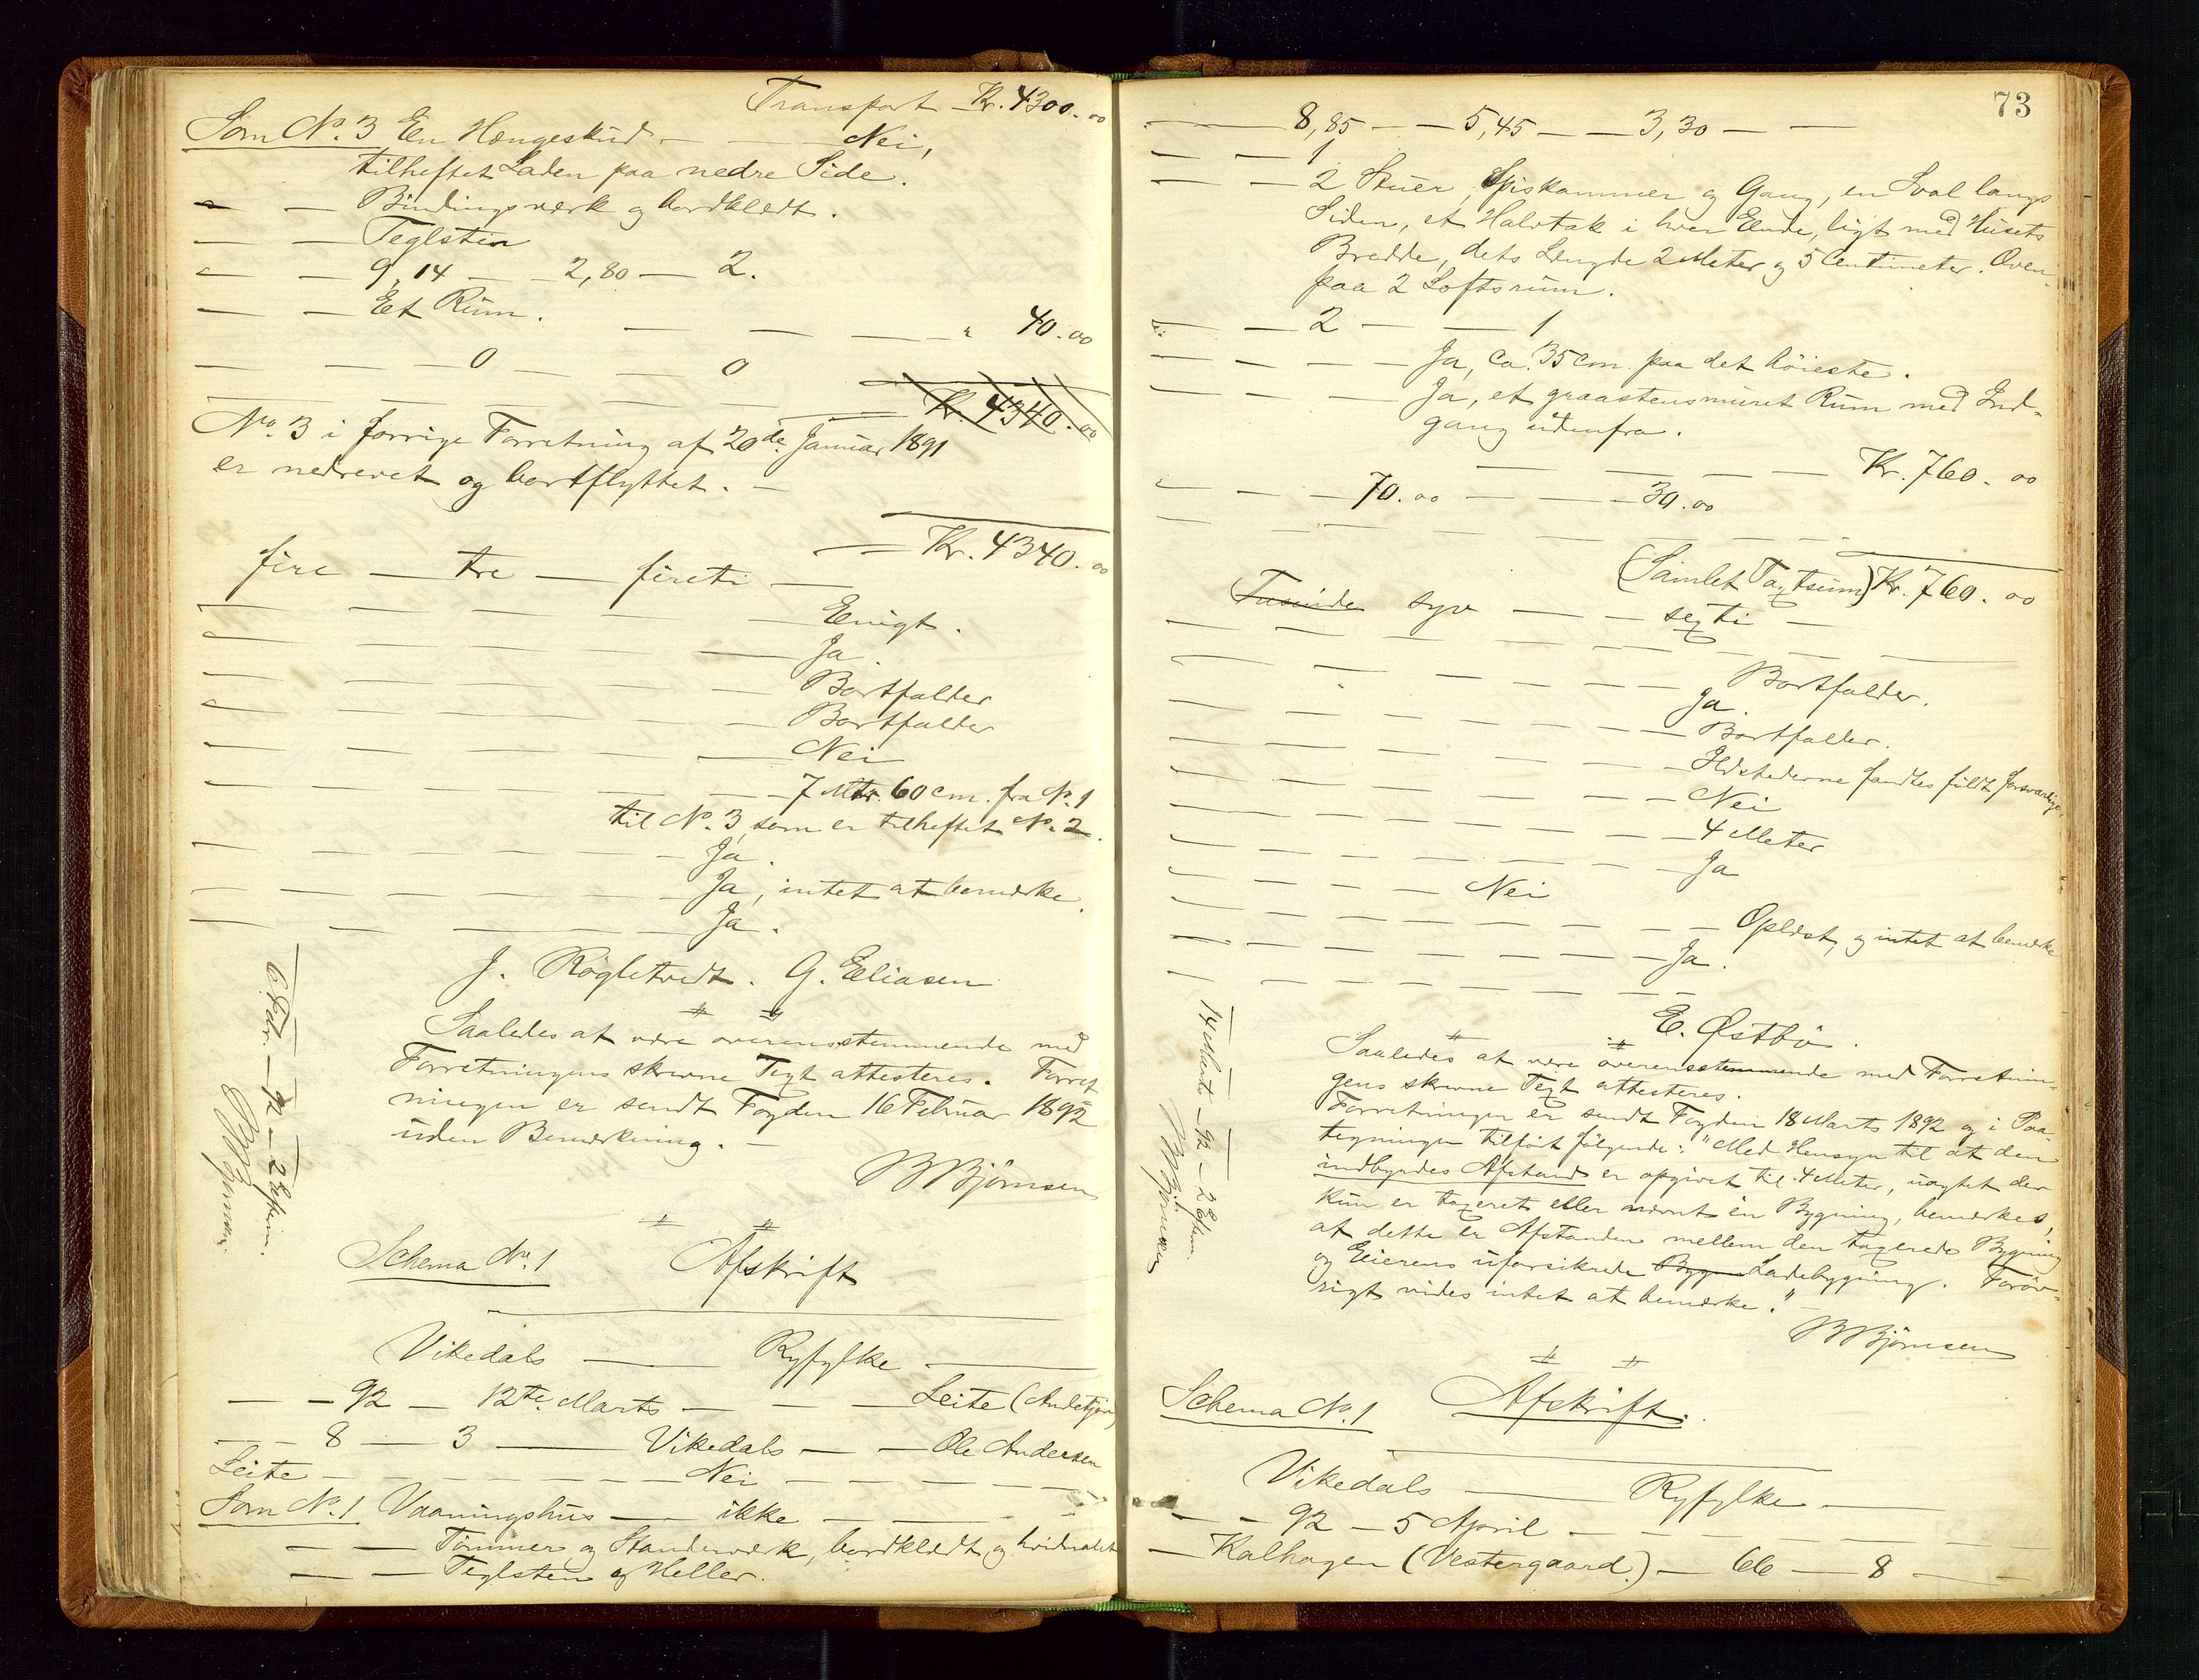 Transport Kr. 4300.00
Som No. 3 En Hængeskud — — Nei,
tilheftet Laden paa nedre Side.
— — Bindingsværk og bordklædt.
— — Teglsten
— — 9,14 — — 2,80 — 2.
— — Et Rum. — — — " 40.00
— — — 0 — — 0
Kr. 4340.00
No. 3 i forrige Forretning af 20de Januar 1891
er nedrevet og bortflyttet. —
Kr. 4340.00
fire — tre — fireti —
Enigt.
Ja
Bortfalder
Bortfalder
Nei
7 Mtr. 60 cm. fra No. 1
til No. 3, som er tilheftet No. 2.
Ja.
Ja, intet at bemærke.
Ja.
J. Rögletvedt. G. Eliasen
Saaledes at være overensstemmende med
Forretningens skrevne Text attesteres. Forret-
ningen er sendt Fogden 16 Februar 1892
uden Bemærkning. —
BBjörnsen
6 Febr. — 92 — 2 Exem.
BBjörnsen
Schema No. 1 Afskrift
Vikedals — Ryfylke —
— — 92 — 12te Marts — — — Leite
— — 8 — 3 — Vikedals — — Ole Andersen
Leite — — — — — Nei — — — —
Som No. 1 Vaaningshus — ikke — — —
— — Tømmer og Standerværk, bordklædt og hvidmalet
— — Teglsten og Heller.
73
— 8,85 — — 5,45 — — 3,30 — —
— — 1
— — 2 Stuer, Spiskammer og Gang, en Sval langs
Siden, et Halvtak i hver Ende, ligt med Husets
Bredde, dets Længde 2 Meter og 5 Centimeter. Oven-
paa 2 Loftsrum.
— — 2 — — 1
— — — Ja, ca. 35 cm. paa det höieste.
— — — Ja, et graastensmuret Rum med Ind-
gang udenfra.
— — — — Kr. 760.00
— — — 70.00 — — — 30.00
(Samlet Taxtsum) Kr. 760.00
Tusinde syv — — sexti —
Bortfalder.
Ja.
Bortfaller.
Ildstederne fandtes fuldt forsvarlige.
Nei
4 Meter
Ja
Nei
Oplæst, og intet at bemærke
Ja.
E. Østbö.
Saaledes at være overensstemmende med Forretnin-
gens skrevne Text attesteres.
Forretningen er sendt Fogden 18 Marts 1892 og i Paa-
tegningen tilført følgende: "Med Hensyn til at den
indbyrdes Afstand er opgivet til 4 Meter, uagtet der
kun er taxeret eller nævnt en Bygning, bemærkes,
at dette er Afstanden mellem den taxerede Bygning
og Eierens uforsikrede Byg Ladebygning. Forøv-
rigt vides intet at bemærke."
BBjörnsen
14 Marts — 92 — 2 Exem.
BBjörnsen
Schema No. 1 Afskrift.
Vikedals — Ryfylke —
— — 92 — 5 April — — — —
— Kalhagen (Vestergaard.) — 66 — 8 — —